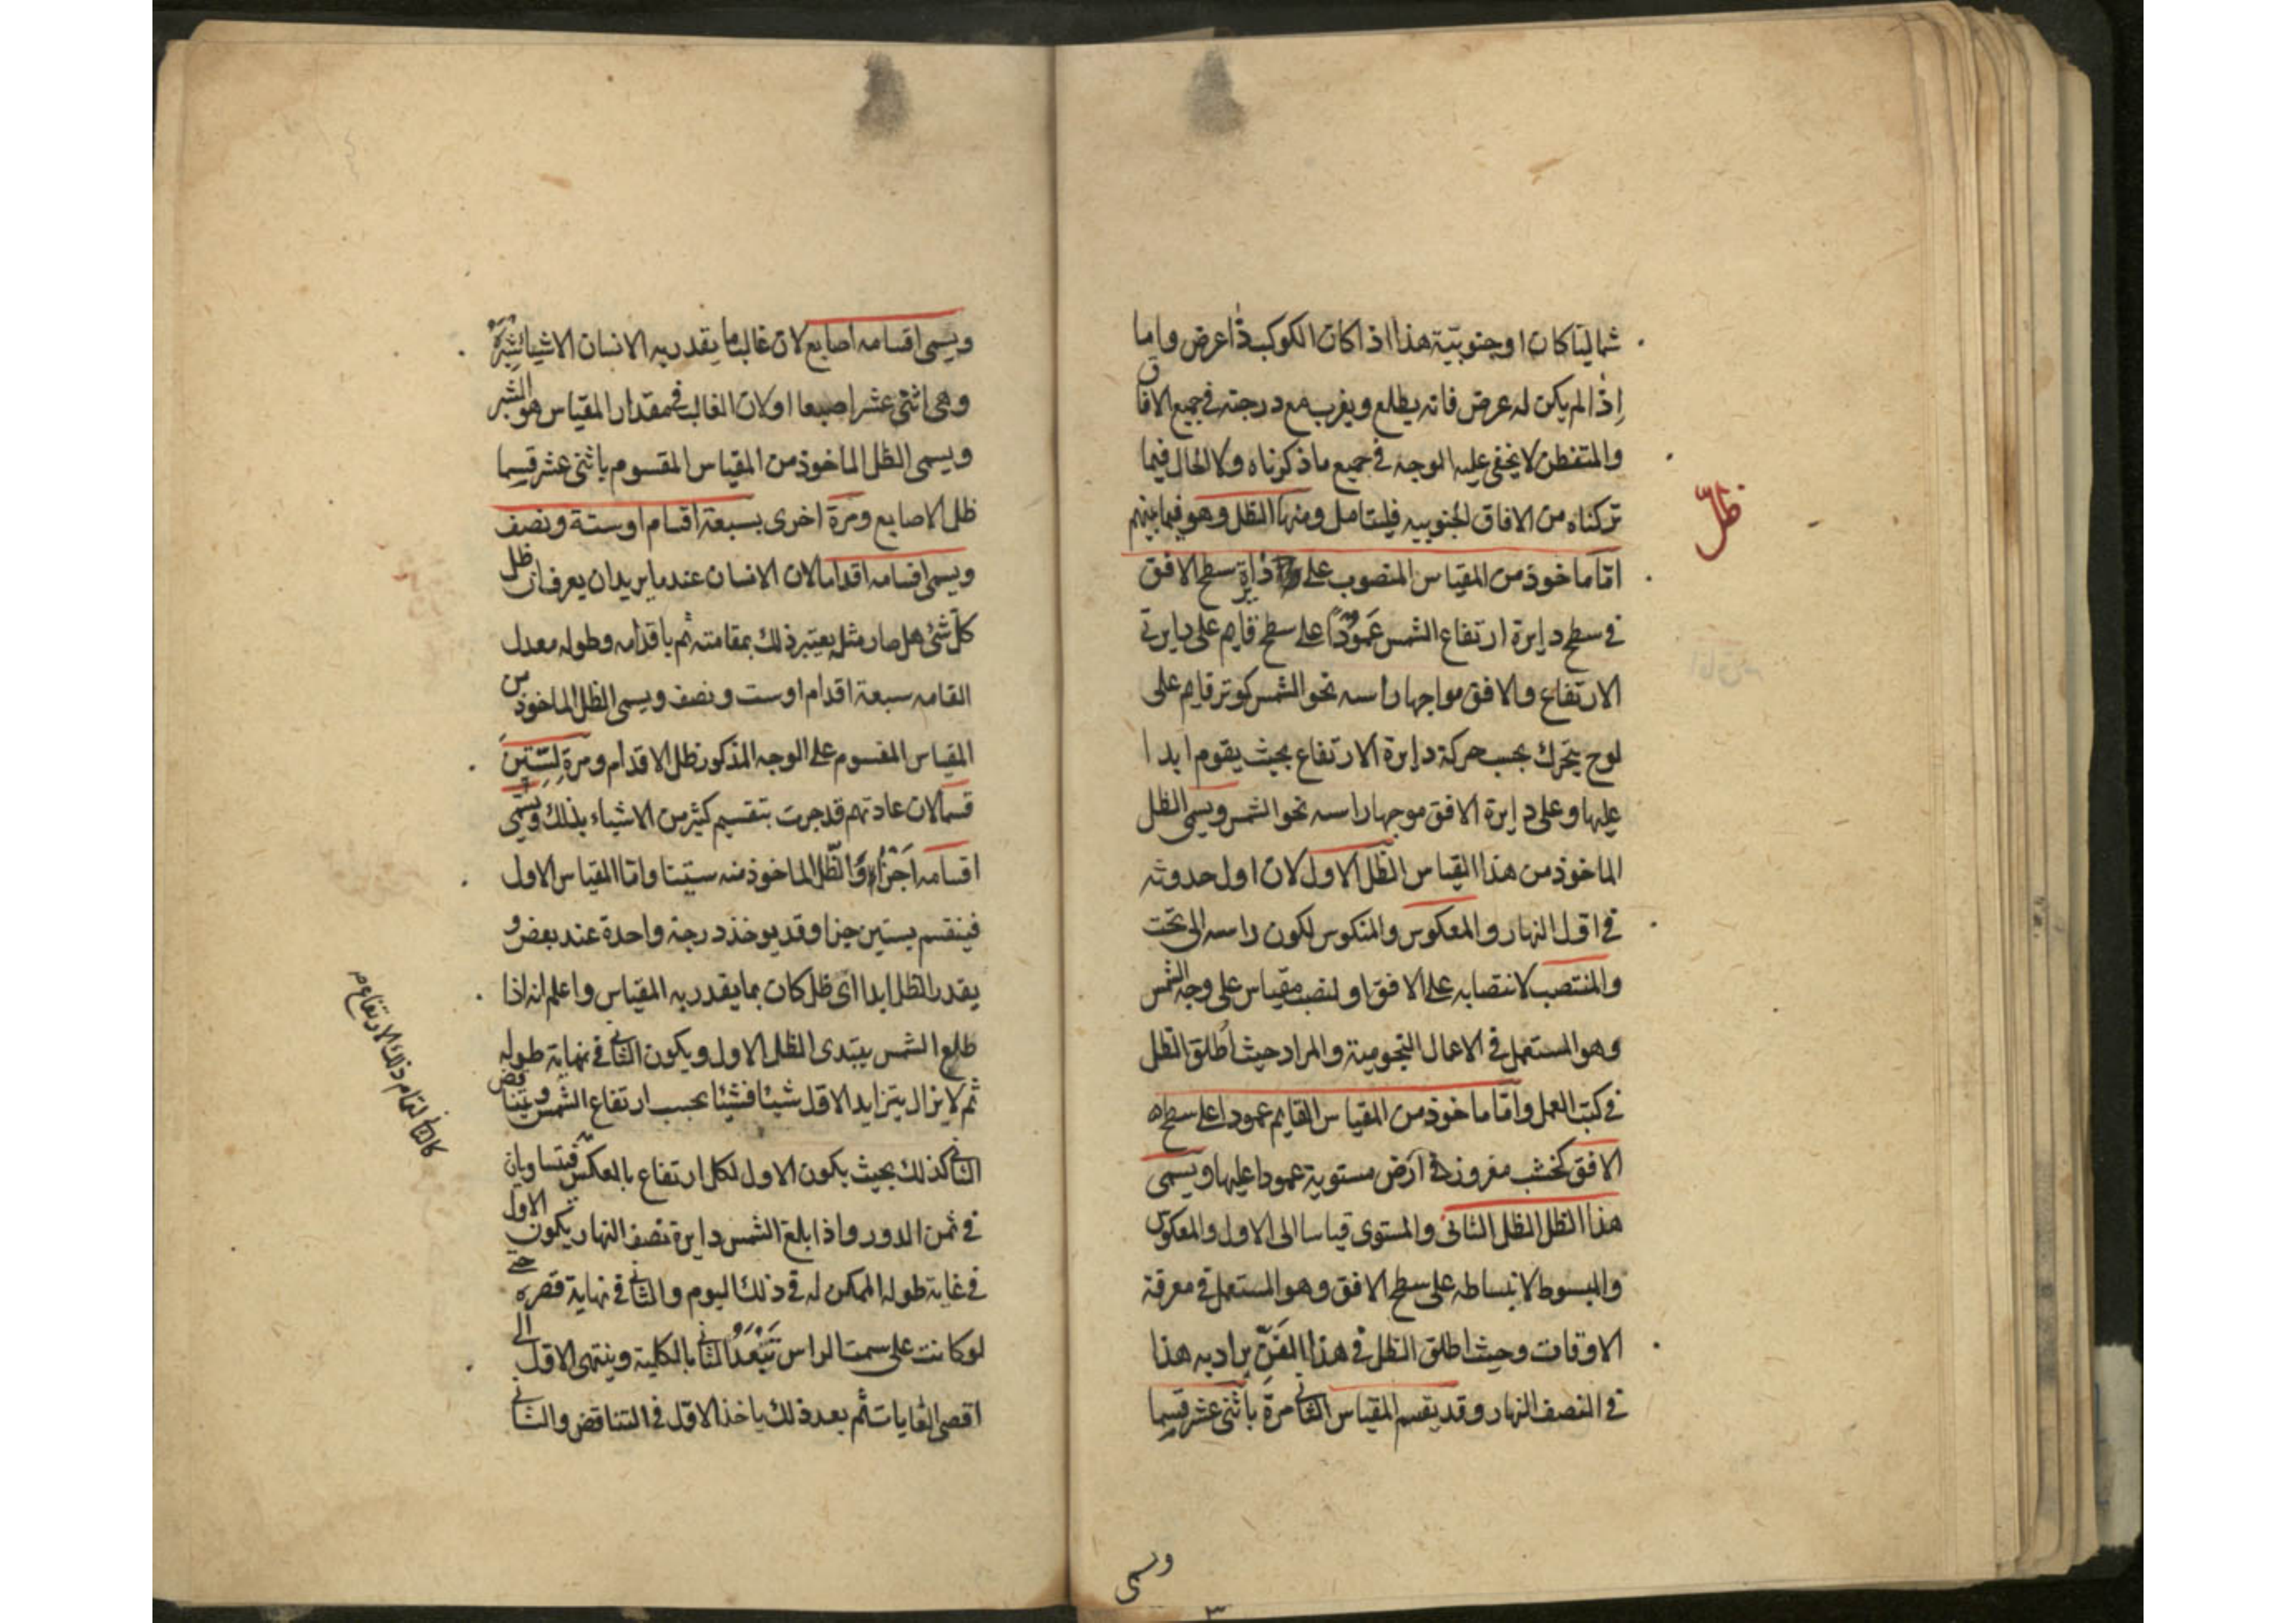 شماليّا كان او جنوبيّة هذا اذا كان الكوكب ذا عرض واما
اذا لم يكن له عرض فانه يطلع ويغرب مع درجته في جميع الافاق
والمتفطن لا يخفى عليه الوجه في جميع ما ذكرناه ولا الحال فيما
تركناه من الافاق الجنوبيه فليتامل ومنها الظل وهو فيما بينهم
ظلّ
امّا ماخوذ من المقياس المنصوب على سطح الافق
في سطح دايرة ارتفاع الشمس عمودا على سطح قايم على دايرتي
الارتفاع والافق مواجها راسه نحو الشمس كوتر قايم على
لوح يتحرك بحسب حركة دايرة الارتفاع بحيث يقوم ابدا
عليها وعلى دايرة الافق موجها راسه نحو الشمس ويسمى الظل
الماخوذ من هذا المقياس الظل الاول لان اول حدوثه
في اوّل النهار والمعكوس والمنكوس لكون راسه الى تحت
والمنتصب لانتصابه على الافق او لنصب مقياس على وجه الشمس
وهو المستعمل في الاعمال النجومية والمراد حيث اُطلق الظل
في كتب العمل وامّا ماخوذ من المقياس القايم عمودا على سطح
الافق كخشب مغروز في ارض مستوية عمودا عليها ويسمى
هذا الظل الظل الثاني والمستوى قياسا الى الاول والمعكوس
والمبسوط لانبساطه على سطح الافق وهو المستعمل في معرفة
الاوقات وحيث اطلق الظل في هذا الفنّ يراد به هذا
في النصف النهار وقد يقسم المقياس الثاني مرّة باثنى عشر قسما
ويسمى
ويسمى اقسامه اصابع لان غالب ما يقدر به الانسان الاشيا شبره
وهى اثنى عشر اصبعا او لان الغالب في مقدار المقياس هو الشبر
ويسمى الظل الماخوذ من المقياس المقسوم باثنى عشر قسما
ظل الاصابع ومرة اخرى بسبعة اقسام او ستة ونصف
ويسمى اقسامه اقداما لان الانسان عندما يريد ان يعرف ان ظل
كل شئ هل صار مثله يعتبر ذلك بمقامته ثم باقدامه وطوله معدل
القامه سبعة اقدام او ست ونصف ويسمى الظل الماخوذ من
المقياس المقسوم على الوجه المذكور ظل الاقدام ومرة لستين
قسما لان عادتهم قد جرت بتقسيم كثير من الاشياء بذلك ويسمى
اقسامه اجزاء والظّل الماخوذ منه ستينيا وامّا المقياس الاول
فينقسم بستين جزا وقد يوخذ درجة واحدة عند بعض و
يقدر الظل ابدا اى ظل كان بما يقدر به المقياس واعلم انه اذا
طلع الشمس يبتدى الظل الاول ويكون الثاني في نهاية طوله
ثم لا يزال يتزايد الاول شيئا فشيئا بحسب ارتفاع الشمس ويتناقص
الثاني كذلك بحيث يكون الاول لكل ارتفاع بالعكس فيتساويان
كالثاني لتمام ذلك الارتفاع
في ثمن الدور واذا بلغ الشمس دايرة نصف النهار يكون الاول
في غاية طوله الممكن له في ذلك اليوم والثاني في نهاية قصره حتى
لو كانت على سمت الراس الثاني بالكلية وينتهى الاول الى
اقصى الغايات ثم بعد ذلك ياخذ الاول في التناقص والثاني